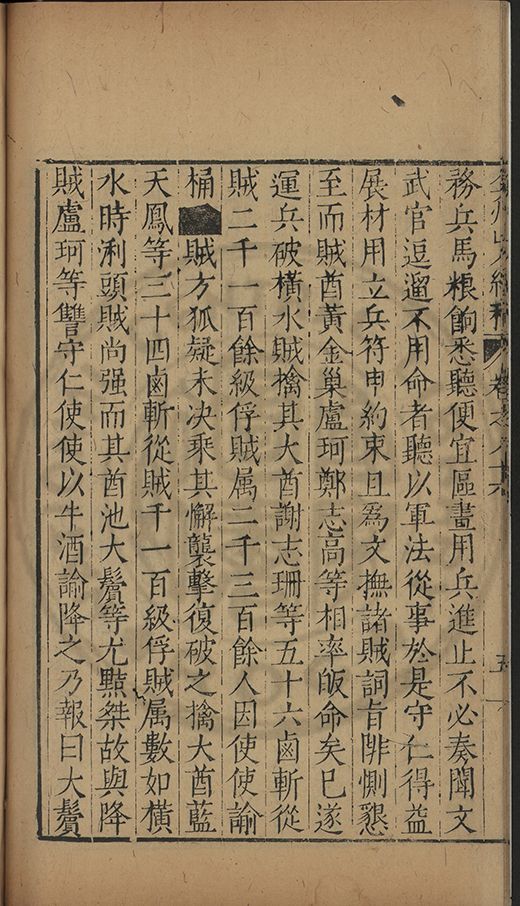 州山人續稿 卷之八十六 五
務兵馬粮餉悉聽便宜區畫用兵進止不必奏聞文
武官逗遛不用命者聽以軍法從事於是守仁得益
展材用立兵符申約束且爲文撫諸賊詞旨悱惻懇
至而賊酋黃金巢盧珂鄭志高等相率皈命矣巳遂
運兵破橫水賊擒其大酋謝志珊等五十六鹵斬從
賊二千一百餘級俘賊属二千三百餘人因使使諭
桶賊方狐疑未决乘其懈襲擊復破之擒大酋藍
天鳳等三十四鹵斬從賊千一百級俘賊属數如橫
水時浰頭賊尚强而其酋池大鬢等尤黠桀故與降
賊盧珂等讐守仁使使以牛酒諭降之乃報曰大鬢